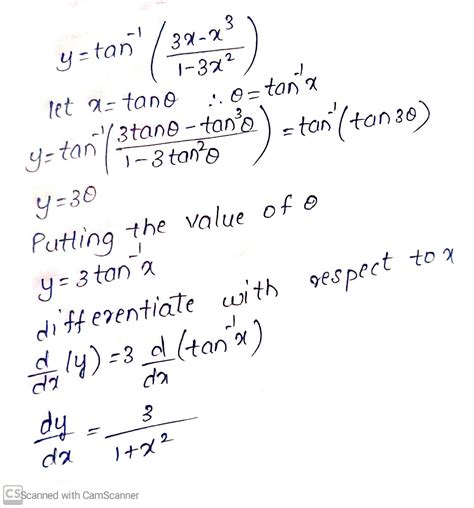 y=tan⁻¹ (3x-x³/1-3x²)
let x=tanθ ∴ θ=tan⁻¹x
y=tan⁻¹(3tanθ-tan³θ/1-3tan²θ) =tan⁻¹(tan3θ)
y=3θ
Putting the value of θ
y=3tan⁻¹x
differentiate with respect to x
d/dx (y)=3 d/dx (tan⁻¹x)
dy/dx = 3/1+x²
CS Scanned with CamScanner